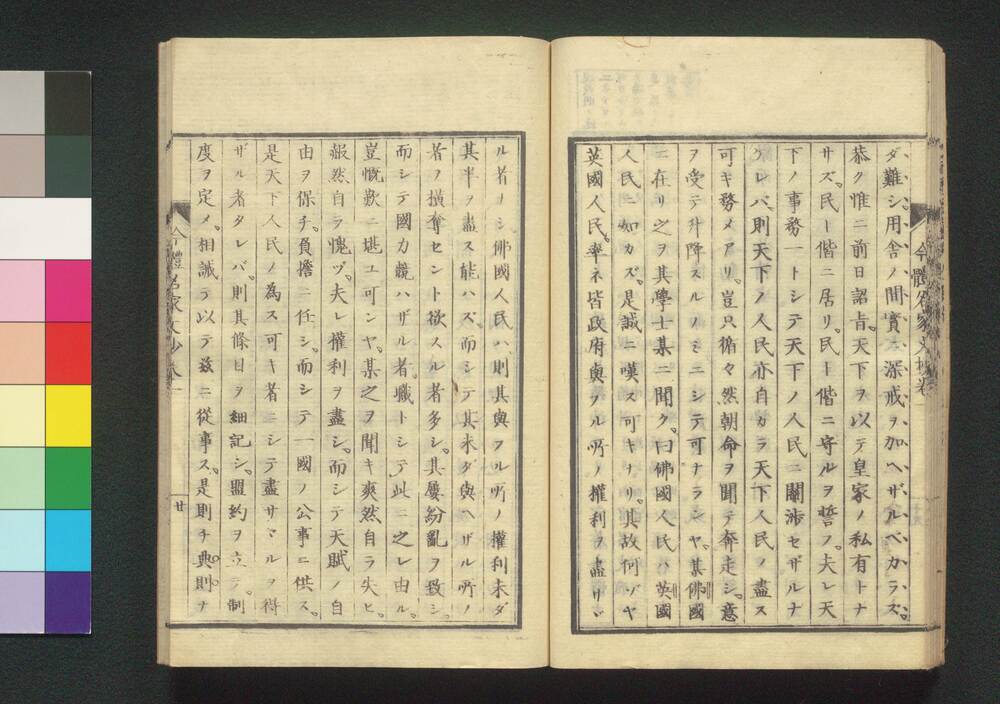 ダ難シ用舎ノ間實ニ深戒ヲ加ヘザルベカラズ。
恭ク惟ニ前日詔㫖。天下ヲ以テ皇家ノ私有トナ
サズ。民ト偕ニ居リ。民ト偕ニ守ルヲ誓フ。夫レ天
下ノ事務一トシテ天下ノ人民ニ關渉セザルナ
ケレバ、則天下ノ人民亦自カラ天下人民ノ盡ス
可キ務メアリ。豈只循々然朝命ヲ聞テ奔走シ。意
ヲ受テ升降スルノミニシテ可ナランヤ。某佛國
ニ在リ之ヲ其學士某ニ聞ク。曰佛國人民ハ英國
人民ニ如カズ。是誠ニ嘆ス可キナリ。其故何ゾヤ
英國人民。率ネ皆政府與フル所ノ權利ヲ盡リヾ
今體名家文抄卷一
ル者ナシ。佛國人民ハ則其與フル所ノ權利未ダ
其半ヲ盡ス能ハズ。而シテ其未ダ與ヘザル所ノ
者ヲ横奪セント欲スル者多シ。其屢紛亂ヲ致シ。
而シテ國力競ハザル者。職トシテ此ニ之レ由ル。
豈慨歎ニ堪ユ可ンヤ。某之ヲ聞キ爽然自ラ失ヒ。
赧然自ラ愧ヅ。夫レ權利ヲ盡シ。而シテ天賦ノ自
由ヲ保チ。負擔ニ任シ。而シテ一國ノ公事ニ供ス。
是天下人民ノ為ス可キ者ニシテ盡サヾルヲ得
ザル者タレバ。則其條目ヲ細記シ。盟約ヲ立テ。制
度ヲ定メ。相誡ラ以テ茲ニ從事ス。是則チ典則ナ
今體名家文抄卷一
廿